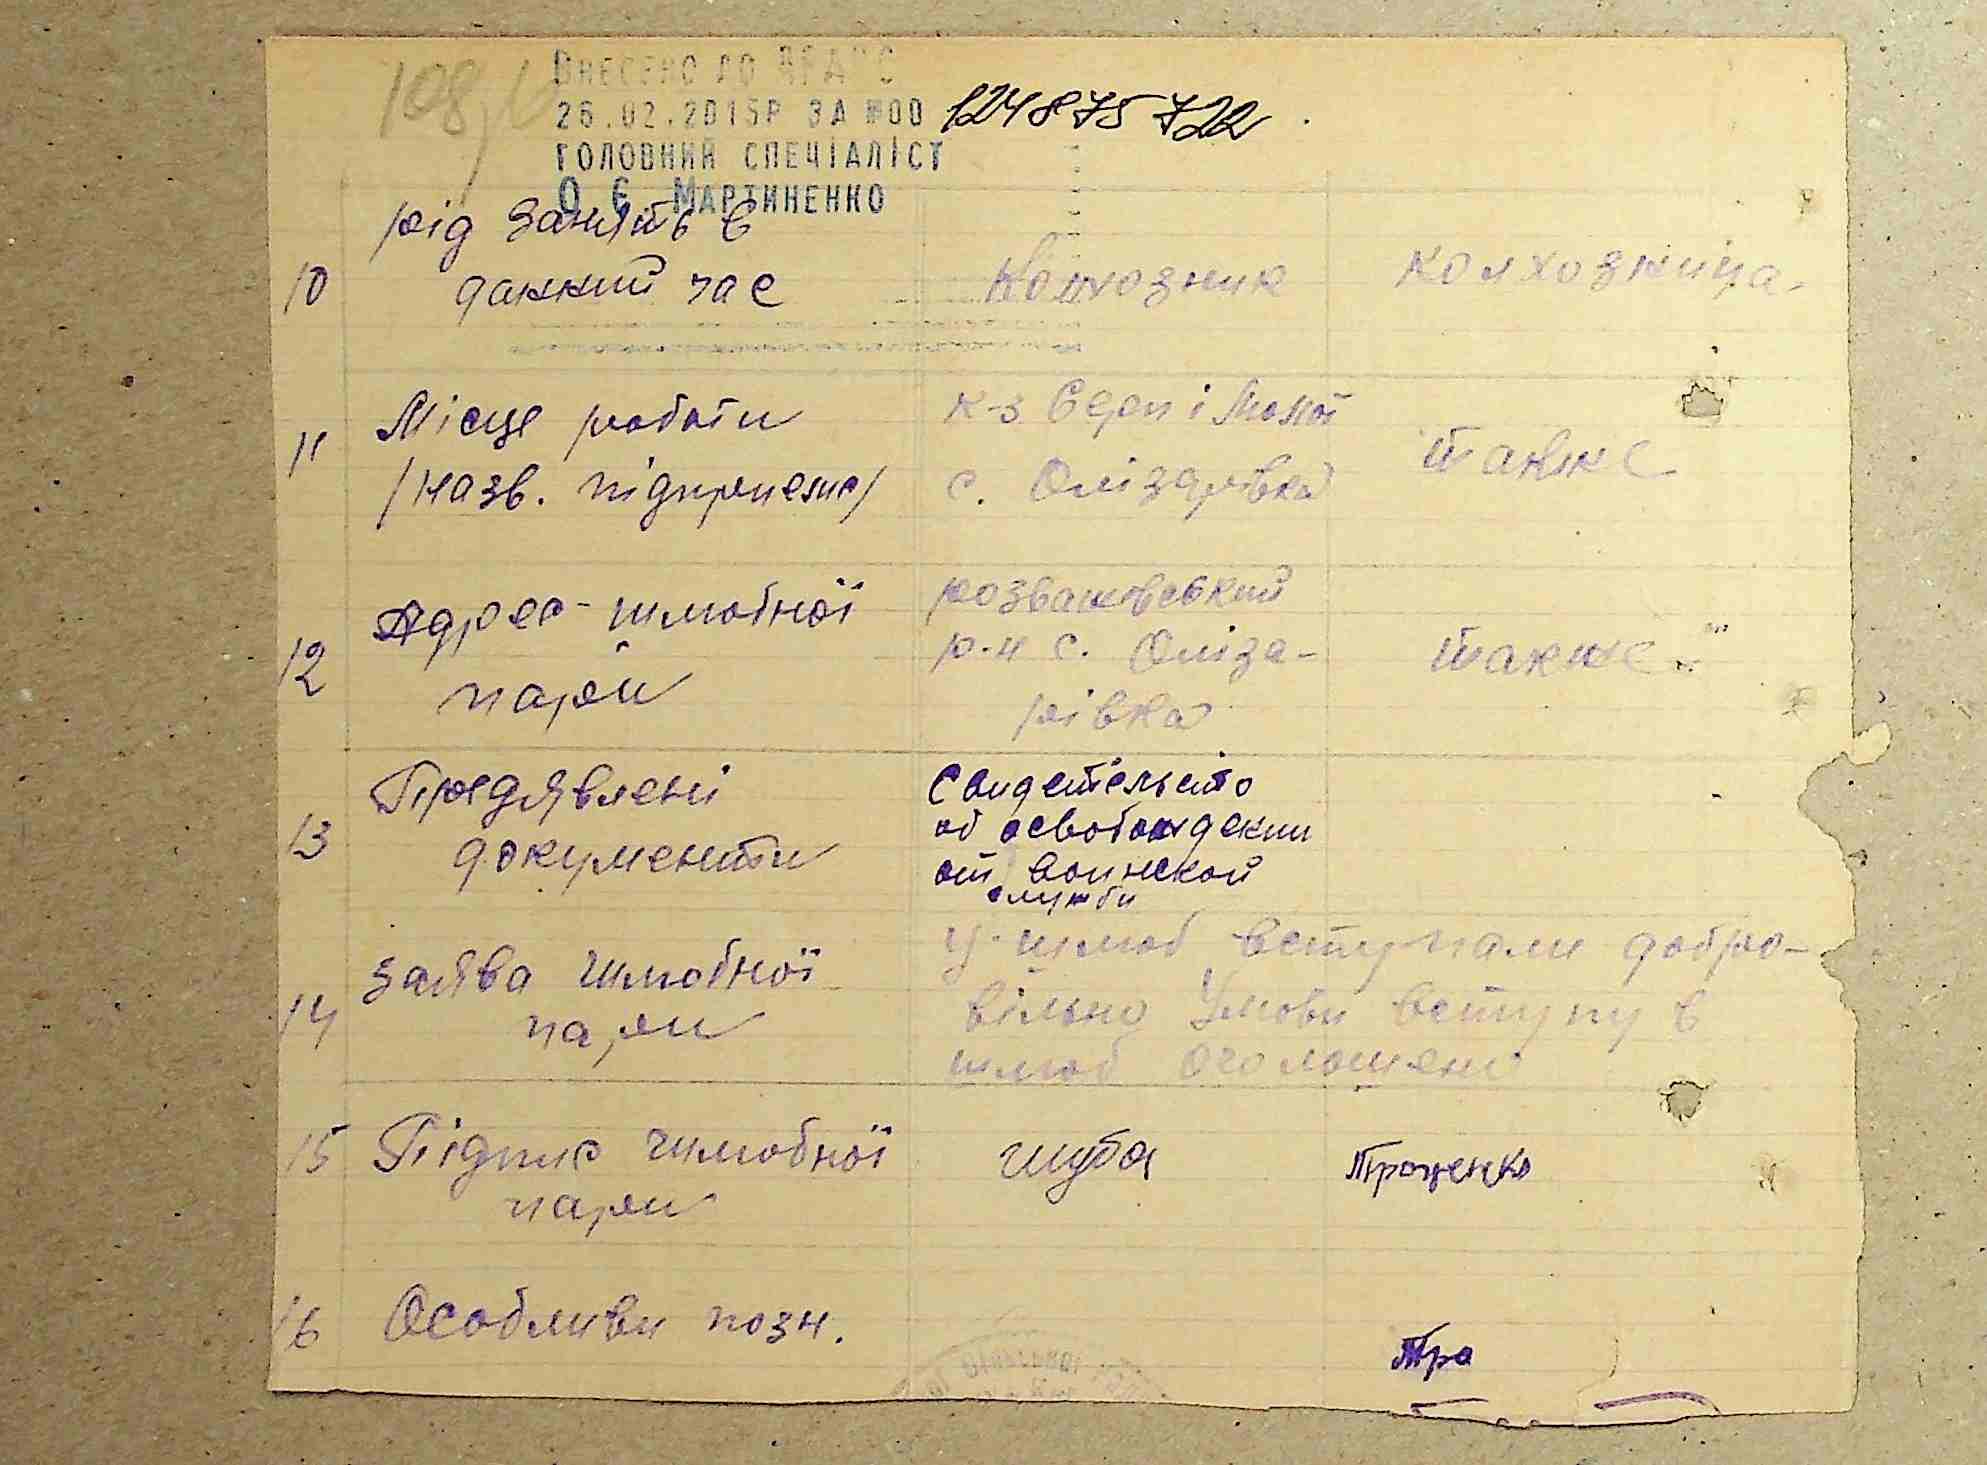 108
Внесено до ДРАЦС
26.02.2015р за №00 124875722.
головний спеціаліст
О Є. Мартиненко
10 рід занять в
данний час Колхозник колхозниця.
11 Місце роботи
/назв. підприєм/ к-з Серп і Молот
с. Олізарівка также
12 Адрес шлюбної
пари розважовський
р-н с. Оліза-
рівка также
13 Предявлені
документи Свидетельсто
об освобождении
от воинской
службы
14 Заява шлюбної
пари У шлюб вступали добро-
вільно Умови вступу в
шлюб оголошені
15 Підпис шлюбної
пари шуба Троценко
16 Особливи позн.
Тро
сільської